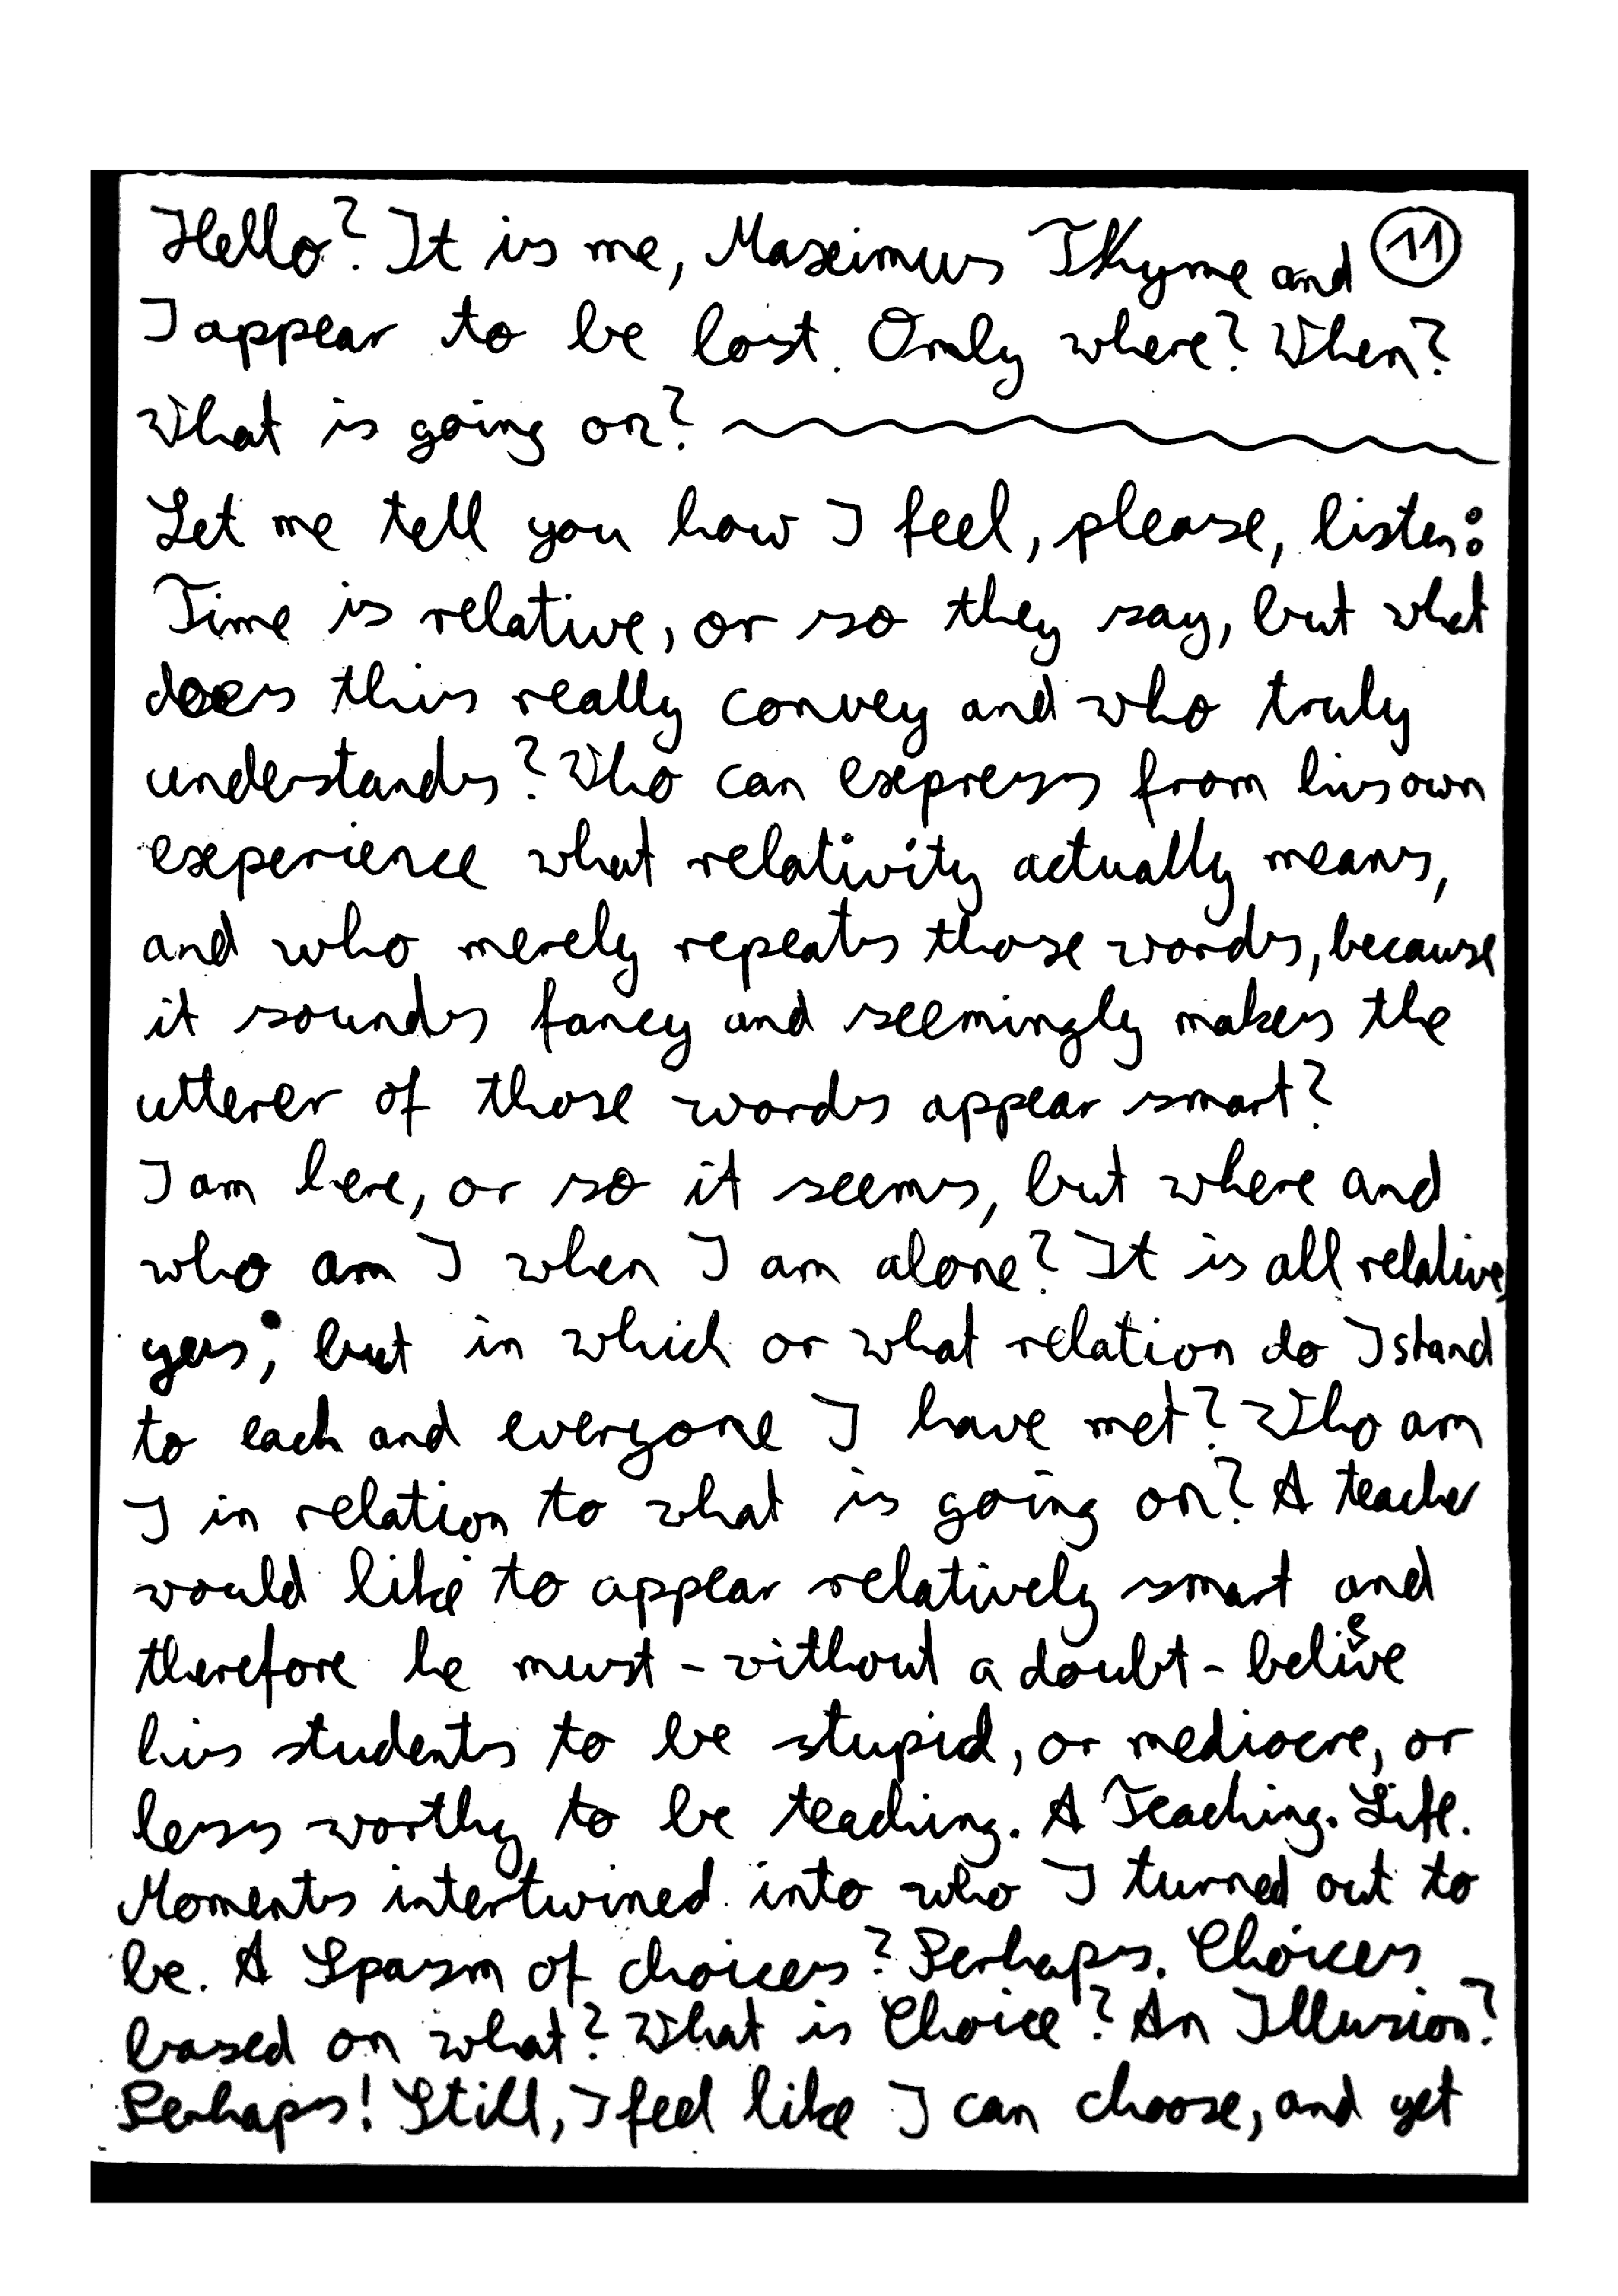 Hello? It is me, Maximus Thyme and 11
I appear to be lost. Only where? When?
What is going on?
Let me tell you how I feel, please, listen:
Time is relative, or so they say, but what
does this really convey and who truly
understands? Who can express from his own
experience what relativity actually means,
and who merely repeats those words, because
it sounds fancy and seemingly makes the
utterer of those words appear smart?
I am here, or so it seems, but where and
who am I when I am alone? It is all relative,
yes, but in which or what relation do I stand
to each and everyone I have met? Who am
I in relation to what is going on? A teacher
would like to appear relatively smart and
therefore he must - without a doubt - believe
his students to be stupid, or mediocre, or
less worthy to be teaching. A Teaching. Life.
Moments intertwined into who I turned out to
be. A Spasm of choices? Perhaps. Choices
based on what? What is Choice? An Illusion?
Perhaps! Still, I feel like I can choose, and yet